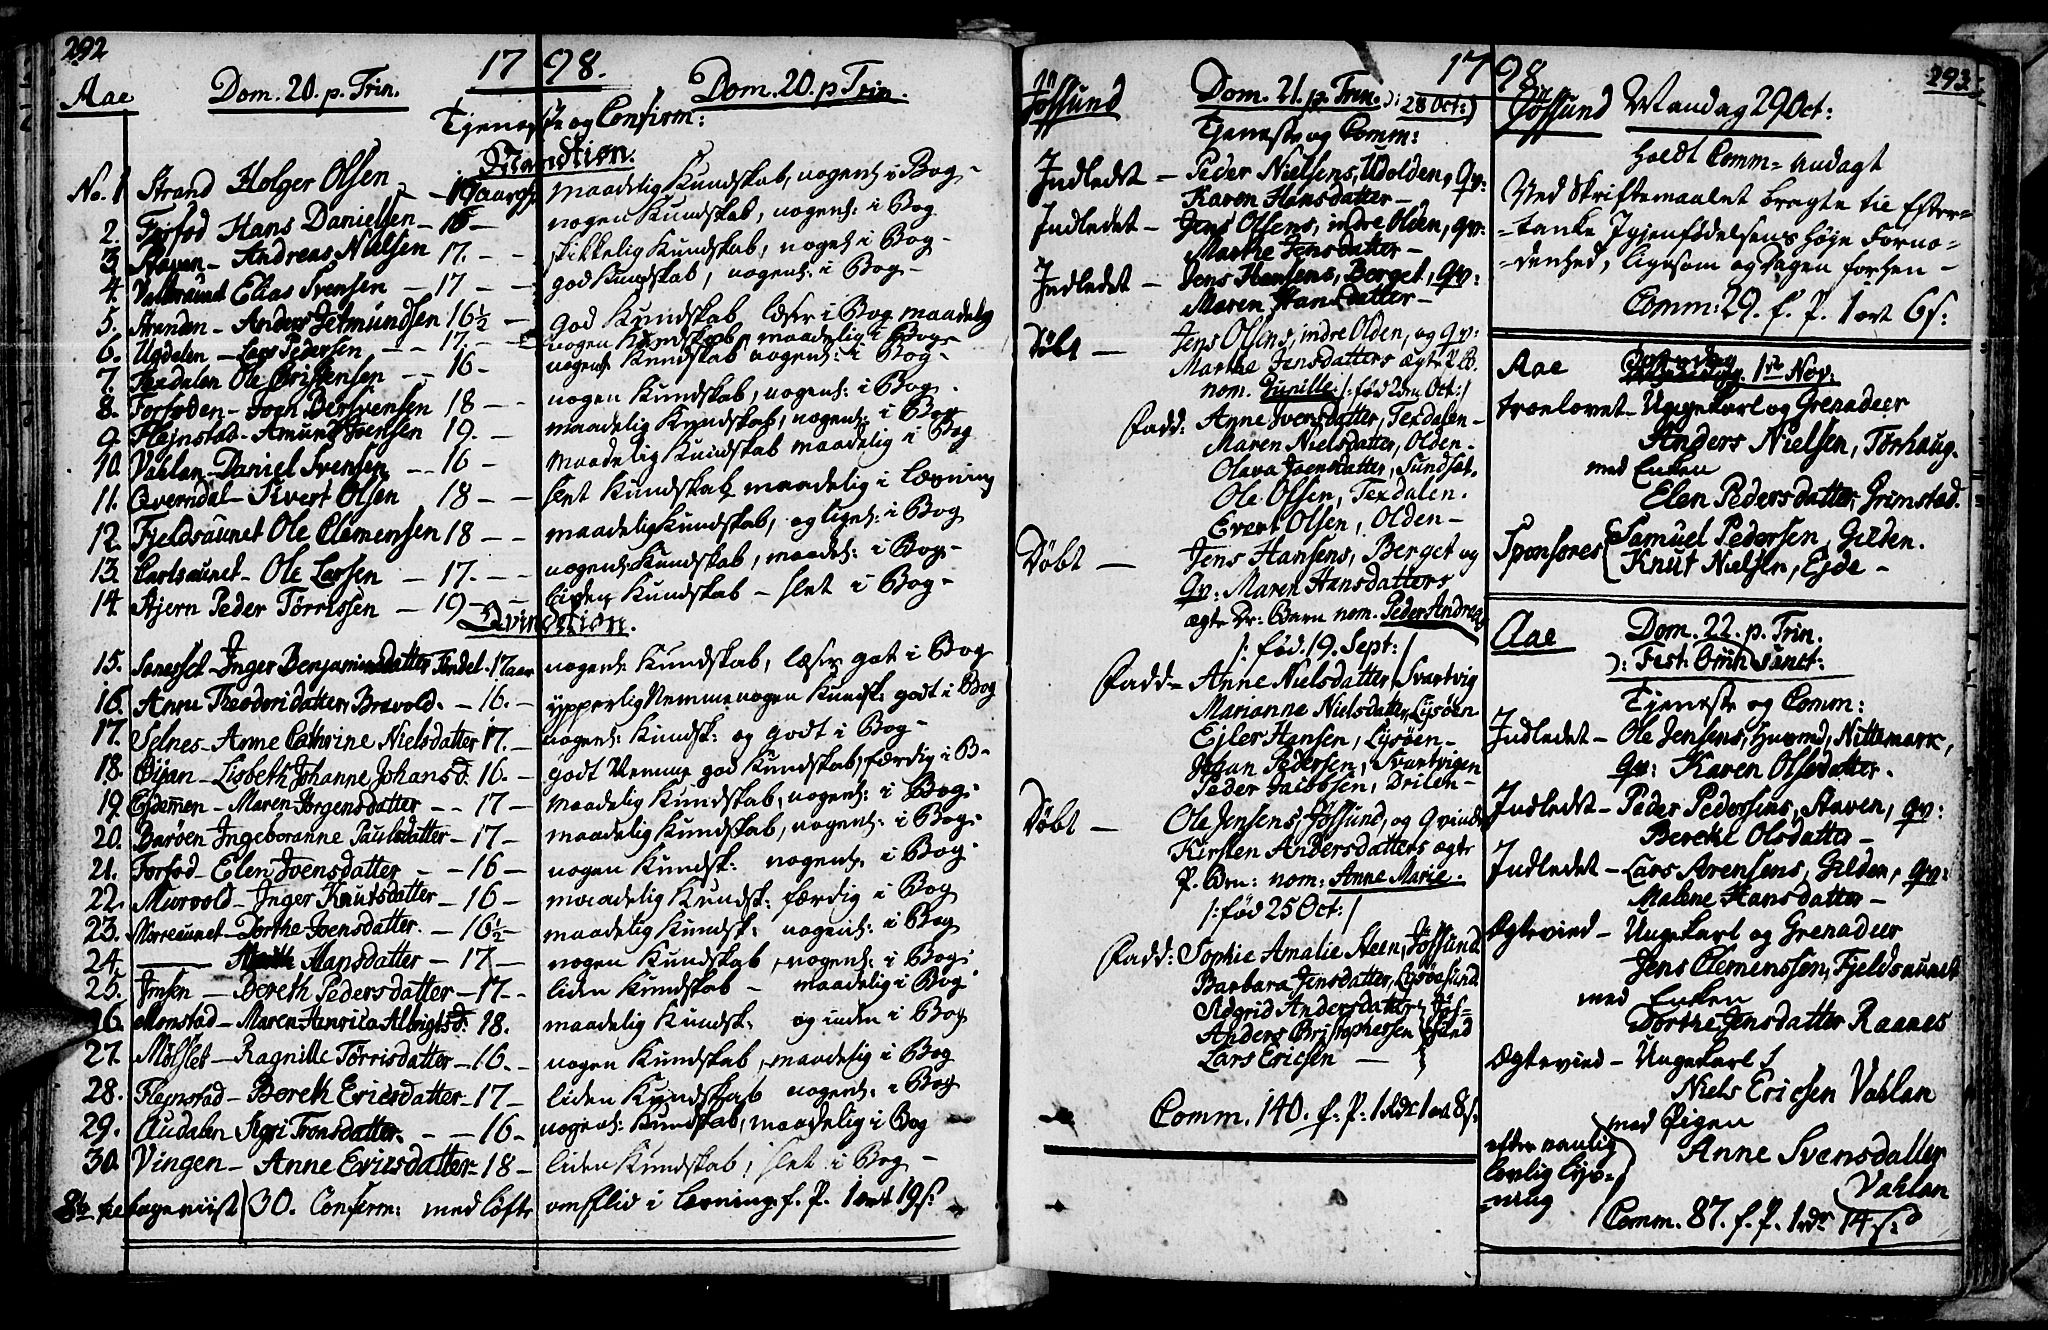 292
1798.
Aae
Dom. 20. p. Trin.
Dom. 20. p Trin.
Tjeneste og Confirm:
Mandkiön.
No. 1 Strand Holger Olsen maadelig Kundskab, nogenl: i Bog -
2. Forfod Hans Danielsen - 18 - nogen Kundskab, nogenl: i Bog
3. Staven - Andreas Nielsen 17. - - skikkelig Kundskab, nogenl: i Bog -
4. Elias Svensen - 17 - - god Kundskab, nogenl: i Bog -
5. Stranden - Anders Jetmundsen 16½ - god Kundskab læser i Bog maadelig
6. Ugdalen - Lars Pedersen - - 17. - nogen Kundskab, maadelig i Bog -
7. Texdalen Ole Cristensen - - 16 - nogenl: Kundskab nogenl: i Bog -
8. Forfoden - Joen Bersvensen 18 - - nogen Kundskab, nogenl: i Bog.
9. Flejnstad - Amund Joensen 19. - maadelig Kundskab, nogenl: i Bog
10. Vahlan - Daniel Svensen - - 16 - maadelig Kundskab maadelig i Bog
11. Qverndal - Sivert Olsen 18 - - slet Kundskab maadelig i Læsning
12. Fjeldsaunet Ole Clemensen 18 - - maadelig Kundskab, og ligel: i Bog
13. Carlsaunet - Ole Larsen - 17. - - nogenl: Kundskab, maadel: i Bog -
14. Stjern Peder Törrissen - 19 - - liden Kundskab - slet i Bog -
Qvindkiön.
15. Inger Benjaminsdatter Tendel. 17 aar nogenl: Kundskab, læser got i Bog
16. Anne Theodori datter, Brevold. - 16. - ypperlig Nemme nogen Kundsk: godt i Bog
17. Selnes - Anne Cathrine Nielsdatter 17. - nogenl: Kundsk: og godt i Bog -
18. Öijan - Lisbeth Johanne Johansd. 16. - godt Nemme god Kundskab, færdig i B -
19. Ejdemen - Maren Jörgensdatter - - 17 - maadelig Kundskab, nogenl: i Bog -
20. Baröen Ingeboranne Paulsdatter - 17 - maadelig Kundskab, nogenl: i Bog -
21. Forfod - Elen Joensdatter - - 16 - nogen Kundsk: nogenl: i Bog
22. Murvold - Inger Knutsdatter - 16 - maadelig Kundsk: færdig i Bog
23. Norreaunet - Dorthe Joensdatter. - 16½ - maadelig Kundsk: nogenl: i Bog
24. Hansdatter - 17 - nogen Kundskab, nogenl: i Bog
25. Imsen - Bereth Pedersdatter - 17 - - liden Kundskab - maadelig i Bog
26. Momstad - Maren Hanrica Albrigtsd: 18. maadelig Kundsk: og inden i Bog
27. Mölslet - Ragnille Törrisdatter - 16. - nogen Kundskab, maadelig i Bog
28. Flejnstad - Bereth Ericsdatter - 17 - liden Kundskab nogenl: i Bog
29. Audalen Sigri Tronsdatter. - - 16 - nogenl: Kundskab, maadelig i Bog
30. Vingen - Anne Ericsdatter - 18 - liden Kundskab, slet i Bog -
8te tilbageviist 30. Confirm: med löfte om flid i Læsning. f. P. 1 ort 19 s:
293
1798
Jössund
Dom. 21. p. Trin. ): 28 Oct:)
Tjeneste og Comm:
Indledet - Peder Nielsens, Udolden, Qv:
Karen Hansdatter -
Indledet - Jens Olsens, indre Olden, qv:
Marthe Jensdatter -
Indledet - Jens Hansens, Berget, Qv:
Maren Hansdatter -
Döbt - Jens Olsens, indre Olden, og Qv:
Marthe Jensdatters ægte P. B.
nom. Gunille /: föd 2den Oct: /
Fadd: Anne Svensdatter, Texdalen -
Maren Nielsdatter, Olden.
Olava Joensdatter, Sundset.
Ole Olsen, Texdalen.
Evert Olsen, Olden -
Döbt - Jens Hansens, Berget og
Qv: Maren Hansdatters
ægte Dr: Barn nom. Peder Andreas
/: föd. 19. Sept: /
Fadd - Anne Nielsdatter Svartvig
Marianne Nielsdatter, Lysöen
Ejler Hansen, Lysöen -
Johan Pedersen, Svartvigen
Peder Jacobsen, Drilen -
Döbt - Ole Jensens, Jössund, og Qvinde
Kirsten Andersdatters ægte
P. Brn: nom: Anne Marie.
/: föd 25 Oct: /
Fadd: Sophie Amalie Steen, Jössund.
Barbara Jensdatter, Lysöesund
Sidgrid Andersdatter Jös-
Anders Cristophersen sund
Lars Ericsen -
Comm. 140. f. P. 1 Rdr 1 ort 8 s:
Jössund Mandag 29 Oct:
holdt Comm = andagt
Ved Skriftemaalet bragte til Efter-
-tanke Igjenfödelsens höje Fornö-
-denhed, ligesom og dagen forhen -
Comm: 29. f. P. 1 ort 6 s:
Aae 1ste Nov:
troelovet - Ungekarl og Grenadeer
Anders Nielsen, Törhaug.
med Enken
Elen Pedersdatter, Grimstad.
Sponsores Samuel Pedersen, Gilden.
Knut Nielsen, Ejde -
Aae
Dom. 22. p. Trin.
): Fest: Omn: Sanct:
Tjeneste og Comm:
Indledet - Ole Jensens, Nittemark,
Qv: Karen Olsdatter.
Indledet - Peder Pedersens, Staven, qv:
Berethe Olsdatter -
Indledet - Lars Arensens, Gilden, qv:
Malene Hansdatter -
Ægteviede - Ungekarl og Grenadeer
Jens Clemenssen, Fjeldsaunet
med Enken
Dorthe Jensdatter Raanes
Ægteviede - Ungekarl
Niels Ericsen Vahlan
med Pigen
Anne Svensdatter
Vahlan
efter vanlig
lovlig Lys-
ning
Comm. 87. f. P. 1 rdr 14 s: